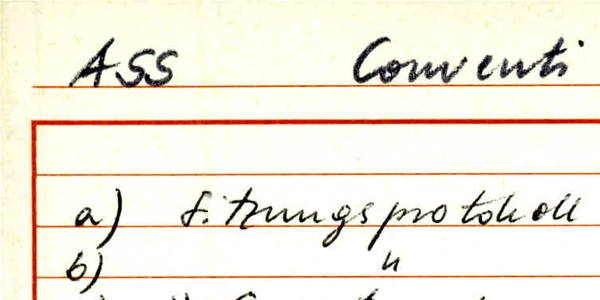 ASS Conventi
a) Sitzungsprotokoll
b) "